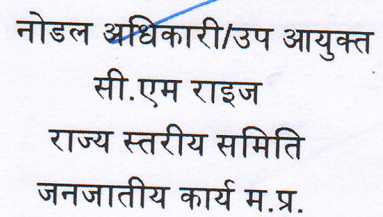 नोडल अधिकारी/उप आयुक्त
सी.एम राइज
राज्य स्तरीय समिति
जनजातीय कार्य म.प्र.